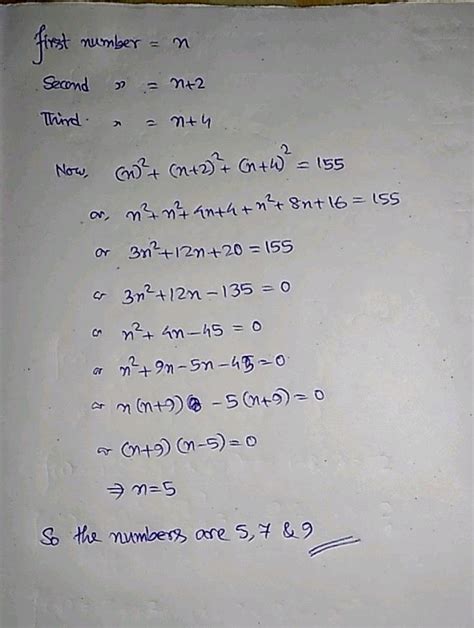 first number = n
Second " = n+2
Third " = n+4
Now, (n)² + (n+2)² + (n+4)² = 155
or, n²+n²+4n+4+n²+8n+16 = 155
or 3n²+12n+20 = 155
or 3n²+12n-135 = 0
or n²+4n-45 = 0
or n²+9n-5n-45=0
or n(n+9) -5(n+9) = 0
or (n+9)(n-5)=0
⇒ n=5
So the numbers are 5,7 & 9